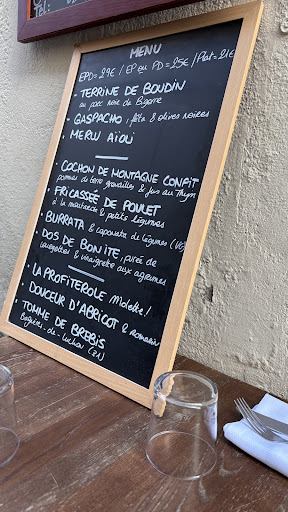 MENU
EPD = 29€ / EP ou PD = 25€ / Plat = 21€
- TERRINE DE BOUDIN
au porc noir de Bigorre
- GASPACHO, feta & olives noires
- MERLU AÏOLI
- COCHON DE MONTAGNE CONFIT
pommes de terre grenailles & jus au thym
- FRICASSÉE DE POULET
à la moutarde & petits légumes
- BURRATA & caponata de légumes (VG)
- DOS DE BONITE, purée de
courgettes & vinaigrette aux agrumes
- LA PROFITEROLE Molette!
- DOUCEUR D'ABRICOT & romarin
- TOMME DE BREBIS
Bagnères-de-Luchon (31)